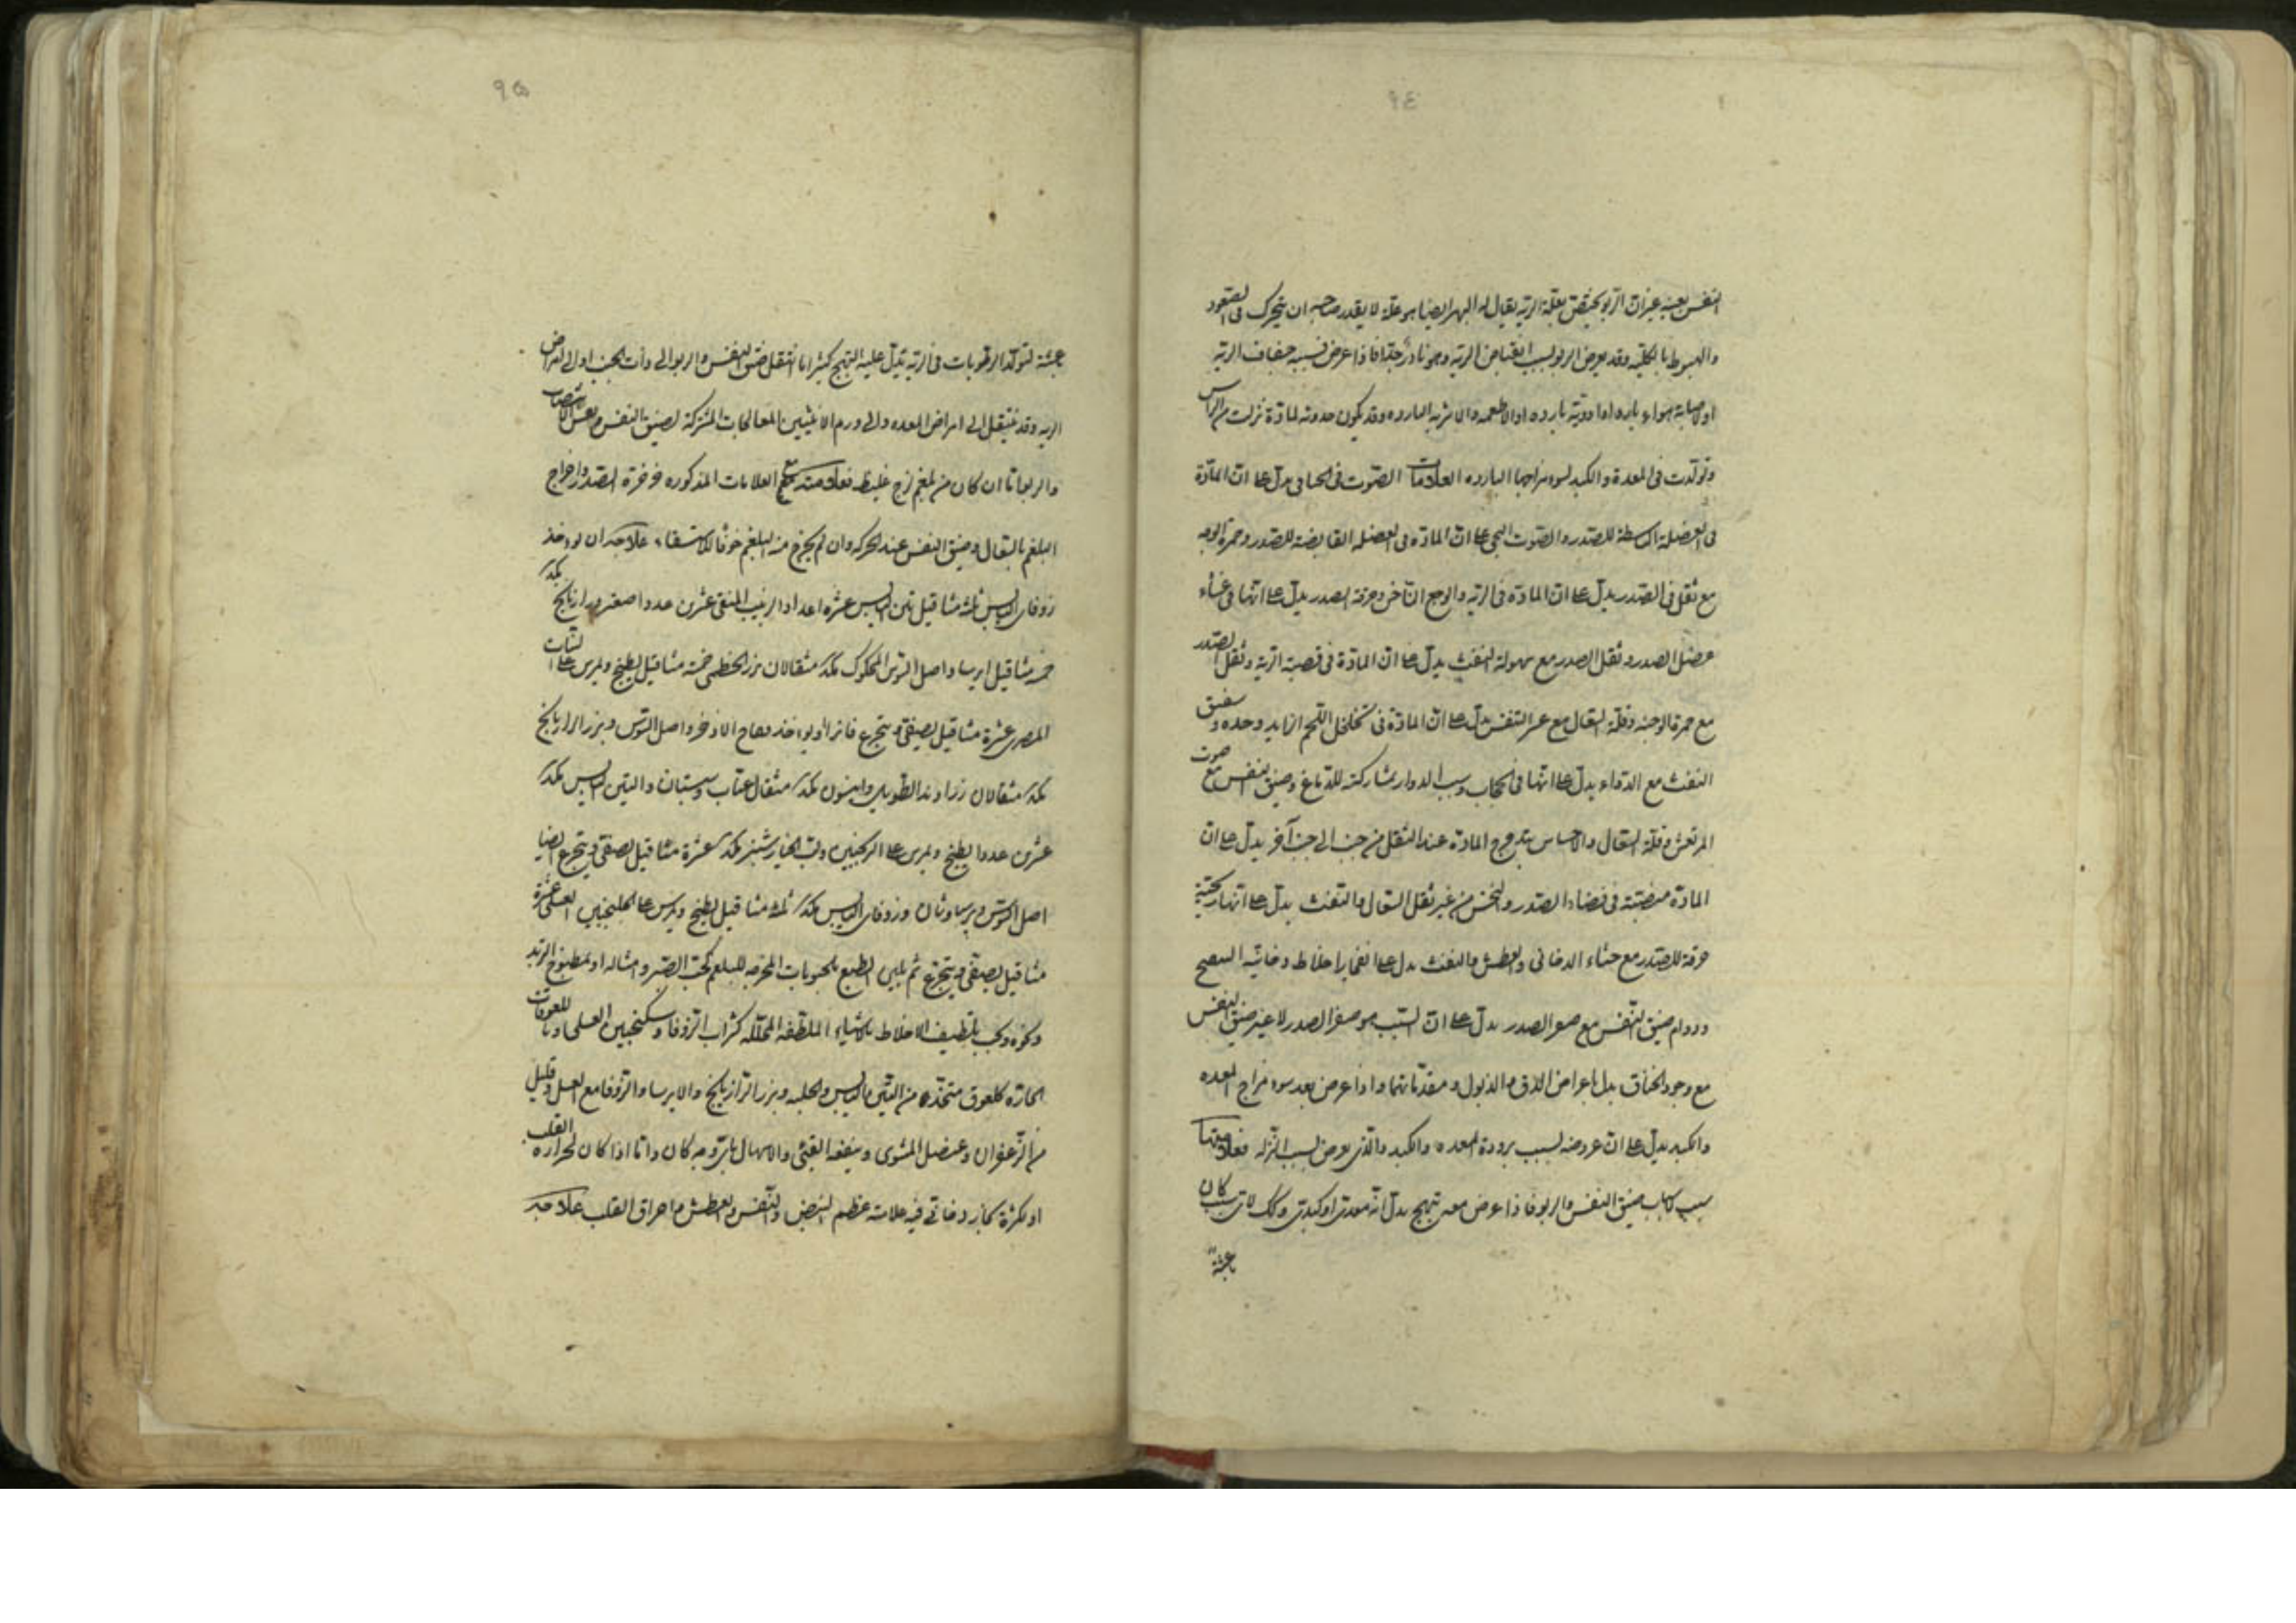 ٩٤
النفس بعينه غير ان الربو يختص بعلة الرية يقال له البهر ايضا هو علة لا يقدر صاحبه ان يتحرك فى الصعود
والهبوط بالكلية وقد يعرض الربو بسبب انقباض الرية وهو نادر جدا فاذا عرض فسببه جفاف الرية
او لاصابة هواء بارد او ادوية بارده او الاطعمه والاشربه البارده وقد يكون حدوثه لمادة نزلت من الراس
وتولدت فى المعدة والكبد لسوء مزاجها البارده العلامات الصوت فى الحافى يدل على ان المادة
فى العضلة الباسطة للصدر والصوت البحى على ان المادة فى العضلة القابضة للصدر وحمرة الوجه
مع ثقل فى الصدر يدل على ان المادة فى الرية والوجع الناخس وحرقة الصدر يدل على انها فى غشاء
عضل الصدر وثقل الصدر مع سهولة النفث يدل على ان المادة فى قصبة الرية وثقل الصدر
مع حمرة الوجنه وقلة السعال مع عسر التنفس يدل على ان المادة فى تخلخل اللحم الزايد وحده و
النفث مع الدوار يدل على انها فى الحجاب وسبب الدوار بمشاركته للدماغ وضيق النفس مع صوت
المرتعش وقلة السعال والاحساس بتدحرج المادة عند التنقل من جنب الى جنب آخر يدل على ان
المادة منصبة فى فضاء الصدر والنخس من غير ثقل السعال والنفث يدل على انها ريحية
حرقة للصدر مع جشاء الدخانى والعطش والنفث يدل على انفجار اخلاط دخانيه
ودوام ضيق النفس مع صغر الصدر يدل على ان السبب هو صغر الصدر لا غير ضيق النفس
مع وجود الخناق يدل باعراض الدق والذبول ومقدماتهما واذا عرض بعد سوء مزاج المعده
والكبد يدل على ان عروضه بسبب برودة المعده والكبد والذى يعرض بسبب النزله فعلامتها
سبب كاسباب ضيق النفس والربو فاذا عرض معه تهيج يدل انه معدى او كبدى وكك لاى سبب كان
باعثة
٩٥
باعثة لتولد الرطوبات فى الرية يدل عليه التهيج كثيرا ما انتقل ضيق النفس والربو الى ذات الجنب او الى امراض
الريه وقد ينتقل الى امراض المعده والى ورم الانثيين المعالجات المشتركة لضيق النفس ونفس الانتصاب
والربو اما ان كان من بلغم لزج غليظ فعلامته مع العلامات المذكوره خرخرة الصدر واخراج
البلغم بالسعال وضيق النفس عند الحركه وان لم يخرج منه البلغم خوفا للاستسقاء علاجه ان يؤخذ
زوفاى اليابس ثلث مثاقيل تين اليابس عشره اعداد الزبيب المنقى عشرين عددا صعتر ورازيانج بكد
خمسه مثاقيل ايرسا واصل السوس المحكوك بكد مثقالان بزر الخطمى خمسة مثاقيل يطبخ ويمرس على النبات
المصرى عشرة مثاقيل يصفى ويتجرع فاترا او يؤخذ فقاح الاذخر واصل السوس وبزر الرازيانج
بكد مثقالان زراوند الطويل وانيسون بكد مثقال عناب وسپستان والتين اليابس بكد
عشرين عددا يطبخ ويمرس على الترنجبين ولب الخيارشنبر بكد عشرة مثاقيل يصفى ويتجرع ايضا
اصل السوس وپرسياوشان وزوفاى اليابس بكد ثلث مثاقيل يطبخ ويمرس على الجلنجبين العسلى عشرة
مثاقيل يصفى ويتجرع ثم يلين الطبع بالحبوبات المخرجه للبلغم كحب الصبر وامثاله او بمطبوخ التربد
ونحوه ويجب تلطيف الاخلاط بالاشياء الملطفه المحلله كشراب الزوفا وسكنجبين العسلى وباللعوقات
الحاره كلعوق متخذ من التين اليابس والحلبه وبزر الرازيانج والايرسا والزوفا مع العسل وقليل
من الزعفران وعنصل المشوى وينفعه القيئ والاسهال باى وجه كان واما اذا كان لحرارة القلب
او لكثرة بخار دخانى فيه علامته عظم النبض والنفس والعطش واحراق القلب علاجه